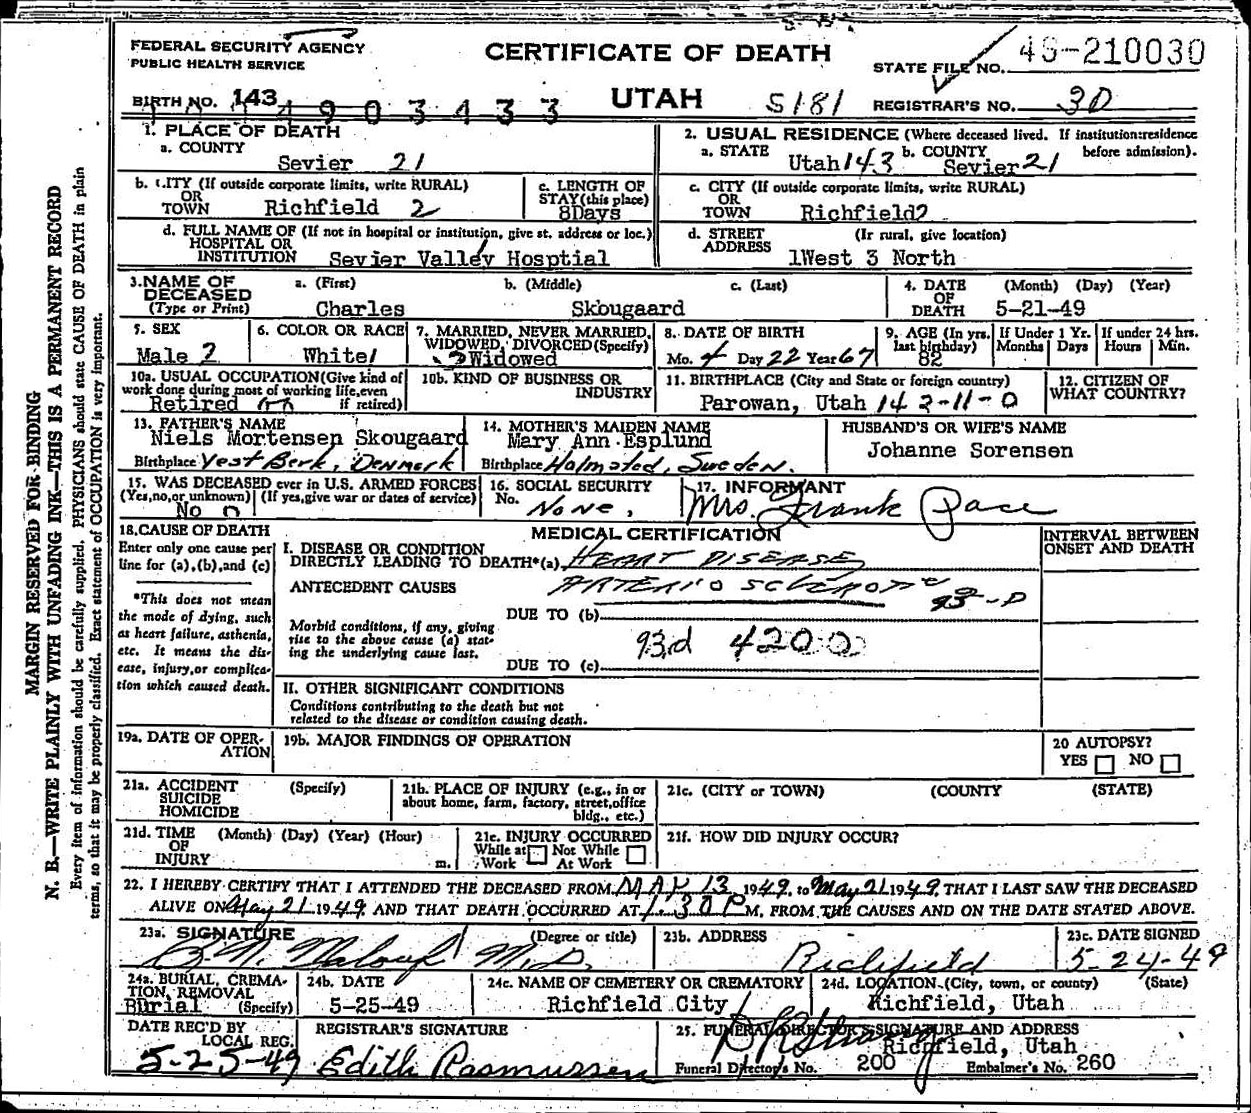 FEDERAL SECURITY AGENCY
PUBLIC HEALTH SERVICE
CERTIFICATE OF DEATH
STATE FILE NO. 49-210030
BIRTH NO. 143 4903433
UTAH
5181
REGISTRAR'S NO. 30
1. PLACE OF DEATH
a. COUNTY
Sevier 21
2. USUAL RESIDENCE (Where deceased lived. If institution:residence before admission).
a. STATE Utah 143 b. COUNTY Sevier 21
b. CITY (If outside corporate limits, write RURAL)
OR
TOWN Richfield 2
c. LENGTH OF
STAY (this place)
8Days
c. CITY (If outside corporate limits, write RURAL)
OR
TOWN Richfield2
d. FULL NAME OF (If not in hospital or institution, give st. address or loc.)
HOSPITAL OR
INSTITUTION Sevier Valley Hosptial
d. STREET (If rural, give location)
ADDRESS 1West 3 North
3.NAME OF
DECEASED
(Type or Print)
a. (First)
Charles
b. (Middle)
c. (Last)
Skougaard
4. DATE
OF
DEATH
(Month) (Day) (Year)
5-21-49
5. SEX
Male 2
6. COLOR OR RACE
White1
7. MARRIED, NEVER MARRIED,
WIDOWED, DIVORCED(Specify)
3 Widowed
8. DATE OF BIRTH
Mo. 4 Day 22 Year 67
9. AGE (In yrs.
last birthday)
82
If Under 1 Yr.
Months Days
If under 24 hrs.
Hours Min.
10a. USUAL OCCUPATION(Give kind of
work done during most of working life,even
if retired)
Retired
10b. KIND OF BUSINESS OR
INDUSTRY
11. BIRTHPLACE (City and State or foreign country)
Parowan, Utah 142-11-0
12. CITIZEN OF
WHAT COUNTRY?
13. FATHER'S NAME
Niels Mortensen Skougaard
Birthplace Vest Berk, Denmark
14. MOTHER'S MAIDEN NAME
Mary Ann Esplund
Birthplace Halmsted, Sweden.
HUSBAND'S OR WIFE'S NAME
Johanne Sorensen
15. WAS DECEASED ever in U.S. ARMED FORCES
(Yes,no,or unknown) (If yes,give war or dates of service)
No 0
16. SOCIAL SECURITY
No. None,
17. INFORMANT
Mrs. Frank Pace
18.CAUSE OF DEATH
Enter only one cause per
line for (a),(b),and (c)
*This does not mean
the mode of dying, such
as heart failure, asthenia,
etc. It means the dis-
ease, injury,or complica-
tion which caused death.
MEDICAL CERTIFICATION
INTERVAL BETWEEN
ONSET AND DEATH
I. DISEASE OR CONDITION
DIRECTLY LEADING TO DEATH*(a) HEART DISEASE
ANTECEDENT CAUSES ARTERIO SCLEROTIC
93-D
DUE TO (b)
Morbid conditions, if any, giving
rise to the above cause (a) stat-
ing the underlying cause last.
93d 4200
DUE TO (c)
II. OTHER SIGNIFICANT CONDITIONS
Conditions contributing to the death but not
related to the disease or condition causing death.
19a. DATE OF OPER-
ATION
19b. MAJOR FINDINGS OF OPERATION
20 AUTOPSY?
YES NO
21a. ACCIDENT
SUICIDE
HOMICIDE
(Specify)
21b. PLACE OF INJURY (e.g., in or
about home, farm, factory, street,office
bldg., etc.)
21c. (CITY or TOWN) (COUNTY) (STATE)
21d. TIME
OF
INJURY
(Month) (Day) (Year) (Hour)
m.
21e. INJURY OCCURRED
While at Not While
Work At Work
21f. HOW DID INJURY OCCUR?
22. I HEREBY CERTIFY THAT I ATTENDED THE DECEASED FROM MAY 13 1949, to May 21 1949, THAT I LAST SAW THE DECEASED
ALIVE ON May 21 1949 AND THAT DEATH OCCURRED AT 1:30 P M. FROM THE CAUSES AND ON THE DATE STATED ABOVE.
23a. SIGNATURE (Degree or title)
Malouf M.D.
23b. ADDRESS
Richfield
23c. DATE SIGNED
5-24-49
24a. BURIAL, CREMA-
TION, REMOVAL
Burial (Specify)
24b. DATE
5-25-49
24c. NAME OF CEMETERY OR CREMATORY
Richfield City
24d. LOCATION (City, town, or county) (State)
Richfield, Utah
DATE REC'D BY
LOCAL REG.
5-25-49
REGISTRAR'S SIGNATURE
Edith Rasmussen
25. FUNERAL DIRECTOR'S SIGNATURE AND ADDRESS
Richfield, Utah
Funeral Director's No. 200 Embalmer's No. 260
MARGIN RESERVED FOR BINDING
N. B.—WRITE PLAINLY WITH UNFADING INK—THIS IS A PERMANENT RECORD
Every item of information should be carefully supplied. PHYSICIANS should state CAUSE OF DEATH in plain
terms, so that it may be properly classified. Exact statement of OCCUPATION is very important.